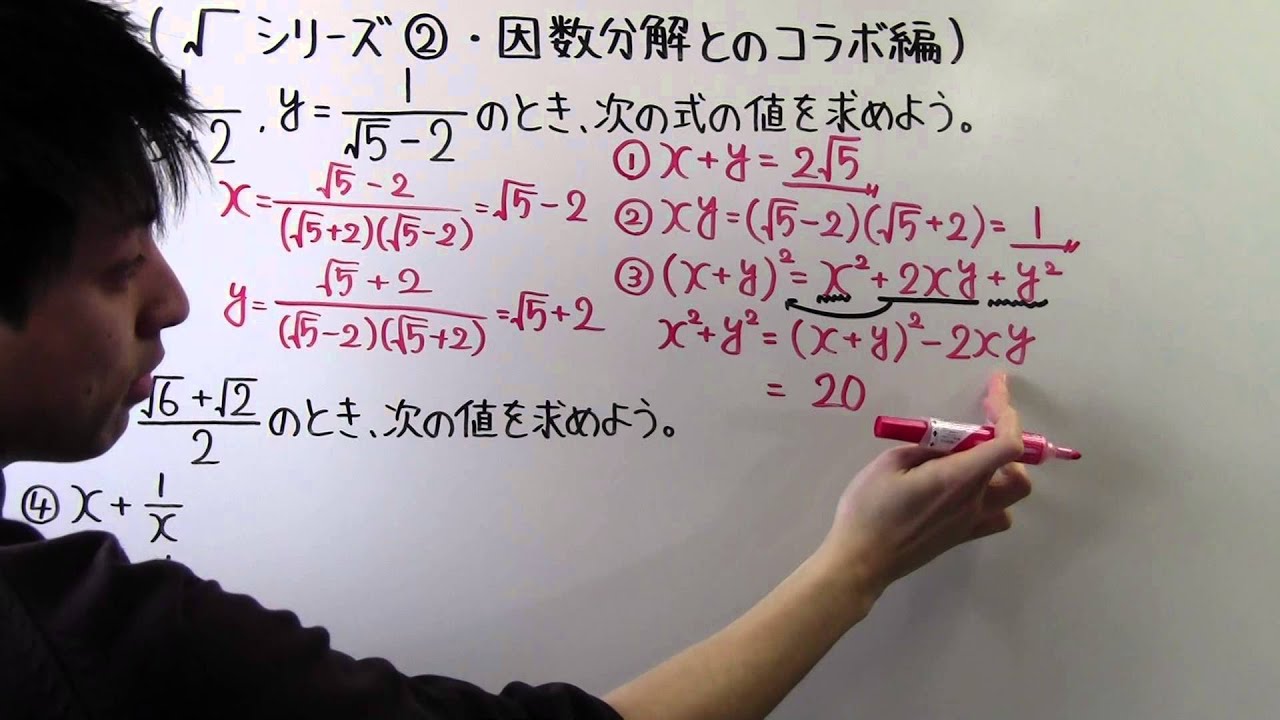 (√ シリーズ②・因数分解とのコラボ編)
+2 , y = 1/(√5-2) のとき、次の式の値を求めよう。
x = (√5-2)/((√5+2)(√5-2)) = √5-2
y = (√5+2)/((√5-2)(√5+2)) = √5+2
① x+y = 2√5
② xy = (√5-2)(√5+2) = 1
③ (x+y)² = x²+2xy+y²
x²+y² = (x+y)²-2xy
= 20
(√6+√2)/2 のとき、次の値を求めよう。
④ x+1/x